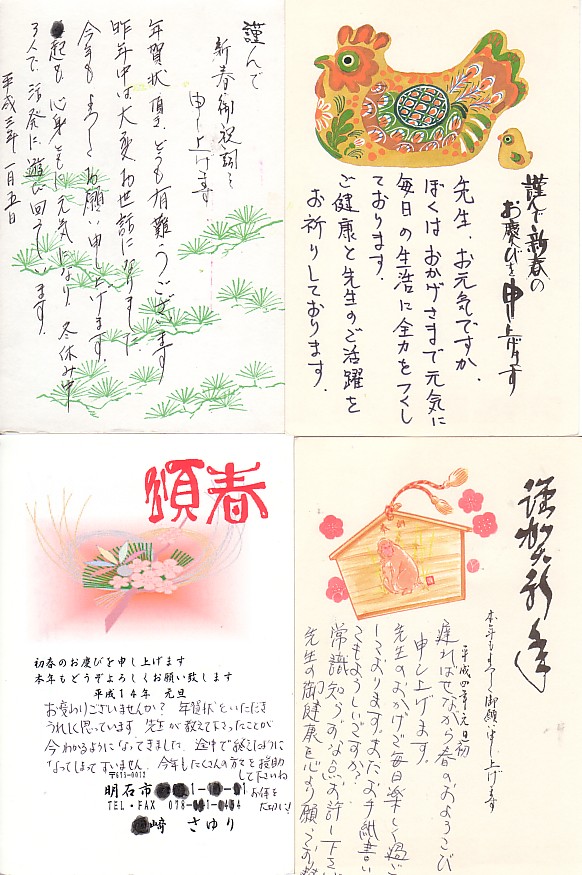 謹んで
新春御祝詞を
申し上げます.
年賀状頂き、どうも有難うございます
昨年中は大変お世話になりました
今年もよろしくお願い申し上げます.
起も心身ともに元気になり、冬休み中
3人で活発に遊び回っています.
平成三年一月五日
謹んで新春の
お慶びを申し上げます
先生、お元気ですか.
ぼくはおかげさまで元気に
毎日の生活に全力をつくし
ております.
ご健康と先生のご活躍を
お祈りしております.
頌春
初春のお慶びを申し上げます
本年もどうぞよろしくお願い致します
平成14年 元旦
お変わりございませんか? 年賀状をいただき
うれしく思っています 先生が教えて下さったことが
今わかるようになってきました. 途中で終えたように
なってしまってすいません. 今年もたくさんの方々を援助
して下さいね
お体を
大切に!
〒673-0012
明石市
TEL・FAX 078-
崎 さゆり
謹賀新年
本年もよろしく御願い申し上げます
平成四年元旦
遅ればせながら春のおよろこび
申し上げます.
先生のおかげで毎日楽しく過ご
しております. またお手紙書い
てもよろしいですか?
常識知らずな点お許し下さい
先生の御健康を心より願って